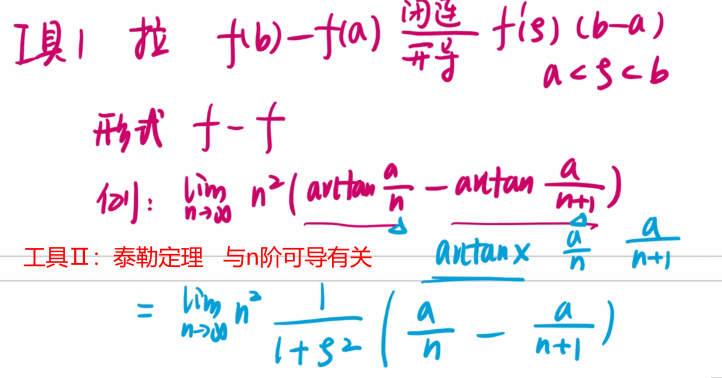 工具1 拉 f(b)-f(a) 闭连 开导 f'(ξ)(b-a)
a<ξ<b
形式 f-f
例: lim n→∞ n²(arctan a/n - arctan a/(n+1))
工具Ⅱ:泰勒定理 与n阶可导有关
arctanx a/n a/(n+1)
= lim n→∞ n² 1/(1+ξ²) (a/n - a/(n+1))